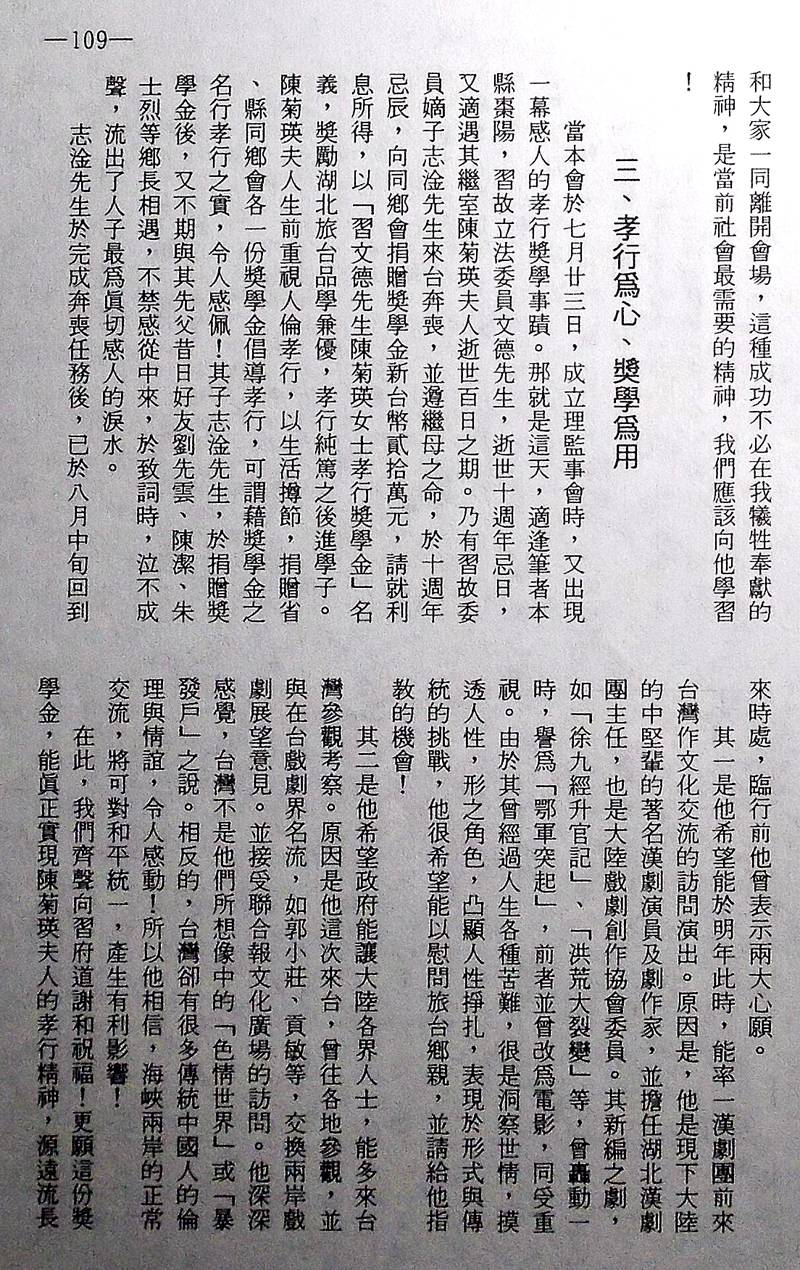 —109—
和大家一同離開會場，這種成功不必在我犧牲奉獻的
精神，是當前社會最需要的精神，我們應該向他學習
！
三、孝行爲心、獎學爲用
當本會於七月廿三日，成立理監事會時，又出現
一幕感人的孝行獎學事蹟。那就是這天，適逢筆者本
縣棗陽，習故立法委員文德先生，逝世十週年忌日，
又適遇其繼室陳菊瑛夫人逝世百日之期。乃有習故委
員嫡子志淦先生來台奔喪，並遵繼母之命，於十週年
忌辰，向同鄉會捐贈獎學金新台幣貳拾萬元，請就利
息所得，以「習文德先生陳菊瑛女士孝行獎學金」名
義，獎勵湖北旅台品學兼優，孝行純篤之後進學子。
陳菊瑛夫人生前重視人倫孝行，以生活撙節，捐贈省
、縣同鄉會各一份獎學金倡導孝行，可謂藉獎學金之
名行孝行之實，令人感佩！其子志淦先生，於捐贈獎
學金後，又不期與其先父昔日好友劉先雲、陳潔、朱
士烈等鄉長相遇，不禁感從中來，於致詞時，泣不成
聲，流出了人子最爲眞切感人的淚水。
志淦先生於完成奔喪任務後，已於八月中旬回到
來時處，臨行前他曾表示兩大心願。
其一是他希望能於明年此時，能率一漢劇團前來
台灣作文化交流的訪問演出。原因是，他是現下大陸
的中堅輩的著名漢劇演員及劇作家，並擔任湖北漢劇
團主任，也是大陸戲劇創作協會委員。其新編之劇，
如「徐九經升官記」、「洪荒大裂變」等，曾轟動一
時，譽爲「鄂軍突起」，前者並曾改爲電影，同受重
視。由於其曾經過人生各種苦難，很是洞察世情，摸
透人性，形之角色，凸顯人性掙扎，表現於形式與傳
統的挑戰，他很希望能以慰問旅台鄉親，並請給他指
教的機會！
其二是他希望政府能讓大陸各界人士，能多來台
灣參觀考察。原因是他這次來台，曾往各地參觀，並
與在台戲劇界名流，如郭小莊、貢敏等，交換兩岸戲
劇展望意見。並接受聯合報文化廣場的訪問。他深深
感覺，台灣不是他們所想像中的「色情世界」或「暴
發戶」之說。相反的，台灣卻有很多傳統中國人的倫
理與情誼，令人感動！所以他相信，海峽兩岸的正常
交流，將可對和平統一，產生有利影響！
在此，我們齊聲向習府道謝和祝福！更願這份獎
學金，能眞正實現陳菊瑛夫人的孝行精神，源遠流長